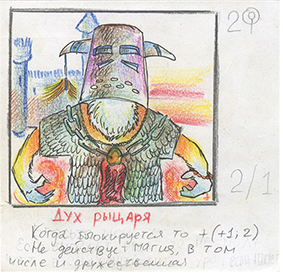 2
2/1
ДУХ РЫЦАРЯ
Когда блокируется то +(+1;2)
Не действует магия, в том
числе и дружественная